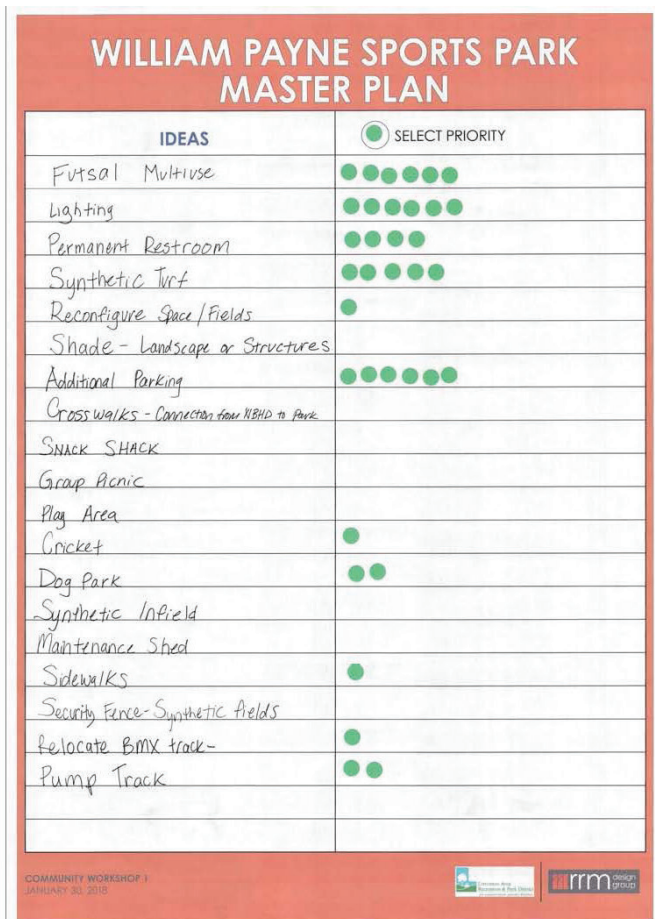 WILLIAM PAYNE SPORTS PARK
MASTER PLAN
IDEAS
SELECT PRIORITY
Futsal Multiuse
Lighting
Permanent Restroom
Synthetic Turf
Reconfigure Space/Fields
Shade - Landscape or Structures
Additional Parking
Crosswalks - Connection from NBHD to Park
SNACK SHACK
Group Picnic
Play Area
Cricket
Dog Park
Synthetic Infield
Maintenance Shed
Sidewalks
Security Fence - Synthetic fields
Relocate BMX track -
Pump Track
COMMUNITY WORKSHOP 1
JANUARY 30, 2018
Livermore Area
Recreation & Park District
rrm design
group